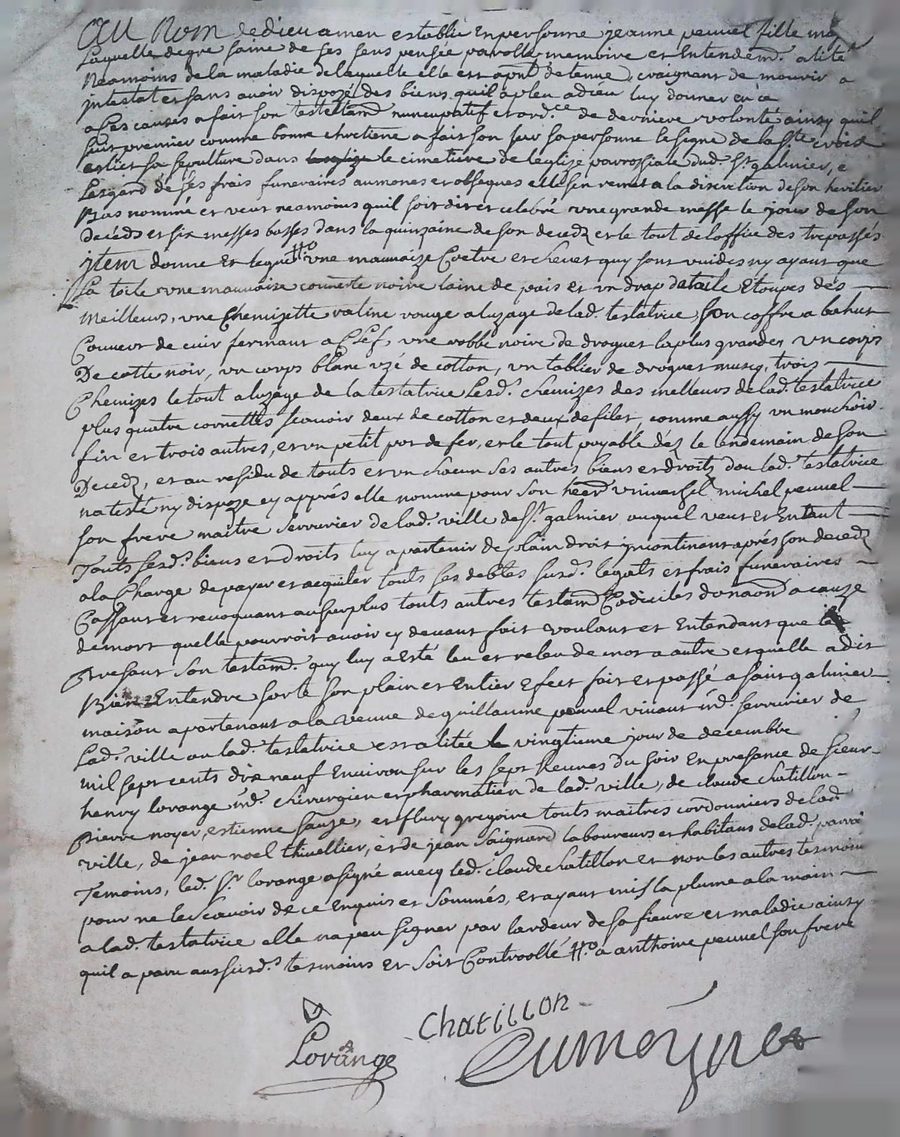 Au Nom de dieu amen establie en personne jeanne peuvel fille ma
Laquelle de gre saine de ses sens pensée parolle memoire et Entendem.t alitée
Neamoins de la maladie de laquelle elle est apnt detenue, craignant de mourir a
jntestat et sans avoir dispozé des biens quil a pleu a dieu luy donner en ce
a ses causes a fait son testam nuncupatif et ord.ce de derniere volonté ainsy quil
suit premier comme bonne chretiene a fait son sur sa personne le signe de la Ste croix
eslict sa sepulture dans le cimetiere de leglize parrossiale dud. St. galmier, e
Lesgard de ses frais funeraires aumones et obseques elle sen remet a la discretion de son heritier
Bas nommé et veut neamoins quil soit dit et celebré une grande messe le jour de son
decéds et six messes basses dans la quinzaine de son decedz et le tout de loffice des trepassés
jtem donne et legue #.o une mauvaize Coetre et chevet quy sont vuides ny ayant que
La toile une mauvaize couverte noire laine de pais et un drap de toile Etoupes des
meilleurs, une Chemizette ratine rouge a luzage de lad. testatrice, son coffre a bahut
Couvert de cuir fermant a Clef, une robbe noire de droguet la plus grande, un corps
De cotte noir, un corps blanc uzé de cotton, un tablier de droguet musq, trois
Chemizes le tout a luzage de la testatrice Lesd. chemizes des melleurs de lad. testatrice
plus quatre cornettes scavoir deux de cotton et deux de filet, comme aussy un mouchoir
fin et trois autres, et un petit pot de fer, et le tout payable dez le lendemain de son
Decedz, et au residu de touts et un chacun ses autres biens et droits dou lad. testatrice
na testé ny dispozé cy apprés elle nomme pour son heer universel michel peuvel
son frere maitre serrurier de lad. ville de St. galmier auquel veut et Entant
Touts sesd. biens et droits luy apartenir de plain droit jncontinent apres son decedz
a la Charge de payer et acquiter touts ses debtes susd. legats et frais funeraires
Cassant et revoquant au surplus touts autres testam Codiciles donaon a cauze
de mort quelle pourroit avoir cy devant fait voulant et Entendant que le
present son testam. quy luy a esté leu et releu de mot a autre et quelle a dit
Bien Entendre sorte son plain et Entier Efect fait et passé a saint galmier
maison apartenant a la veuve de guillaume peuvel vivant md. serrurier de
Lad. ville ou lad. testatrice est alitée le vingtiume jour de decembre
mil sept cents dix neuf Environ sur les sept heures du soir En presance de sieur
henry lorange md. chirurgien et pharmatien de lad. ville, de claude chatillon
pierre noyer, estienne sauze, et fleury gregoire touts maitres cordonniers de lad.
ville, de jean noel thivellier, et de jean saignard laboureurs et habitans de lad. parroi
Temoins, led. Sr. lorange a signé avecq led. claude chatillon et non les autres tesmoins
pour ne les scavoir de ce Enquis et sommés, et ayant mis la plume a la main
a lad. testatrice elle na peu signer par lardeur de sa fievre et maladie ainsy
quil a paru aux susd.s tesmoins et soit Controollé #.o a anthoine peuvel son frere
Lorange
Chatillon